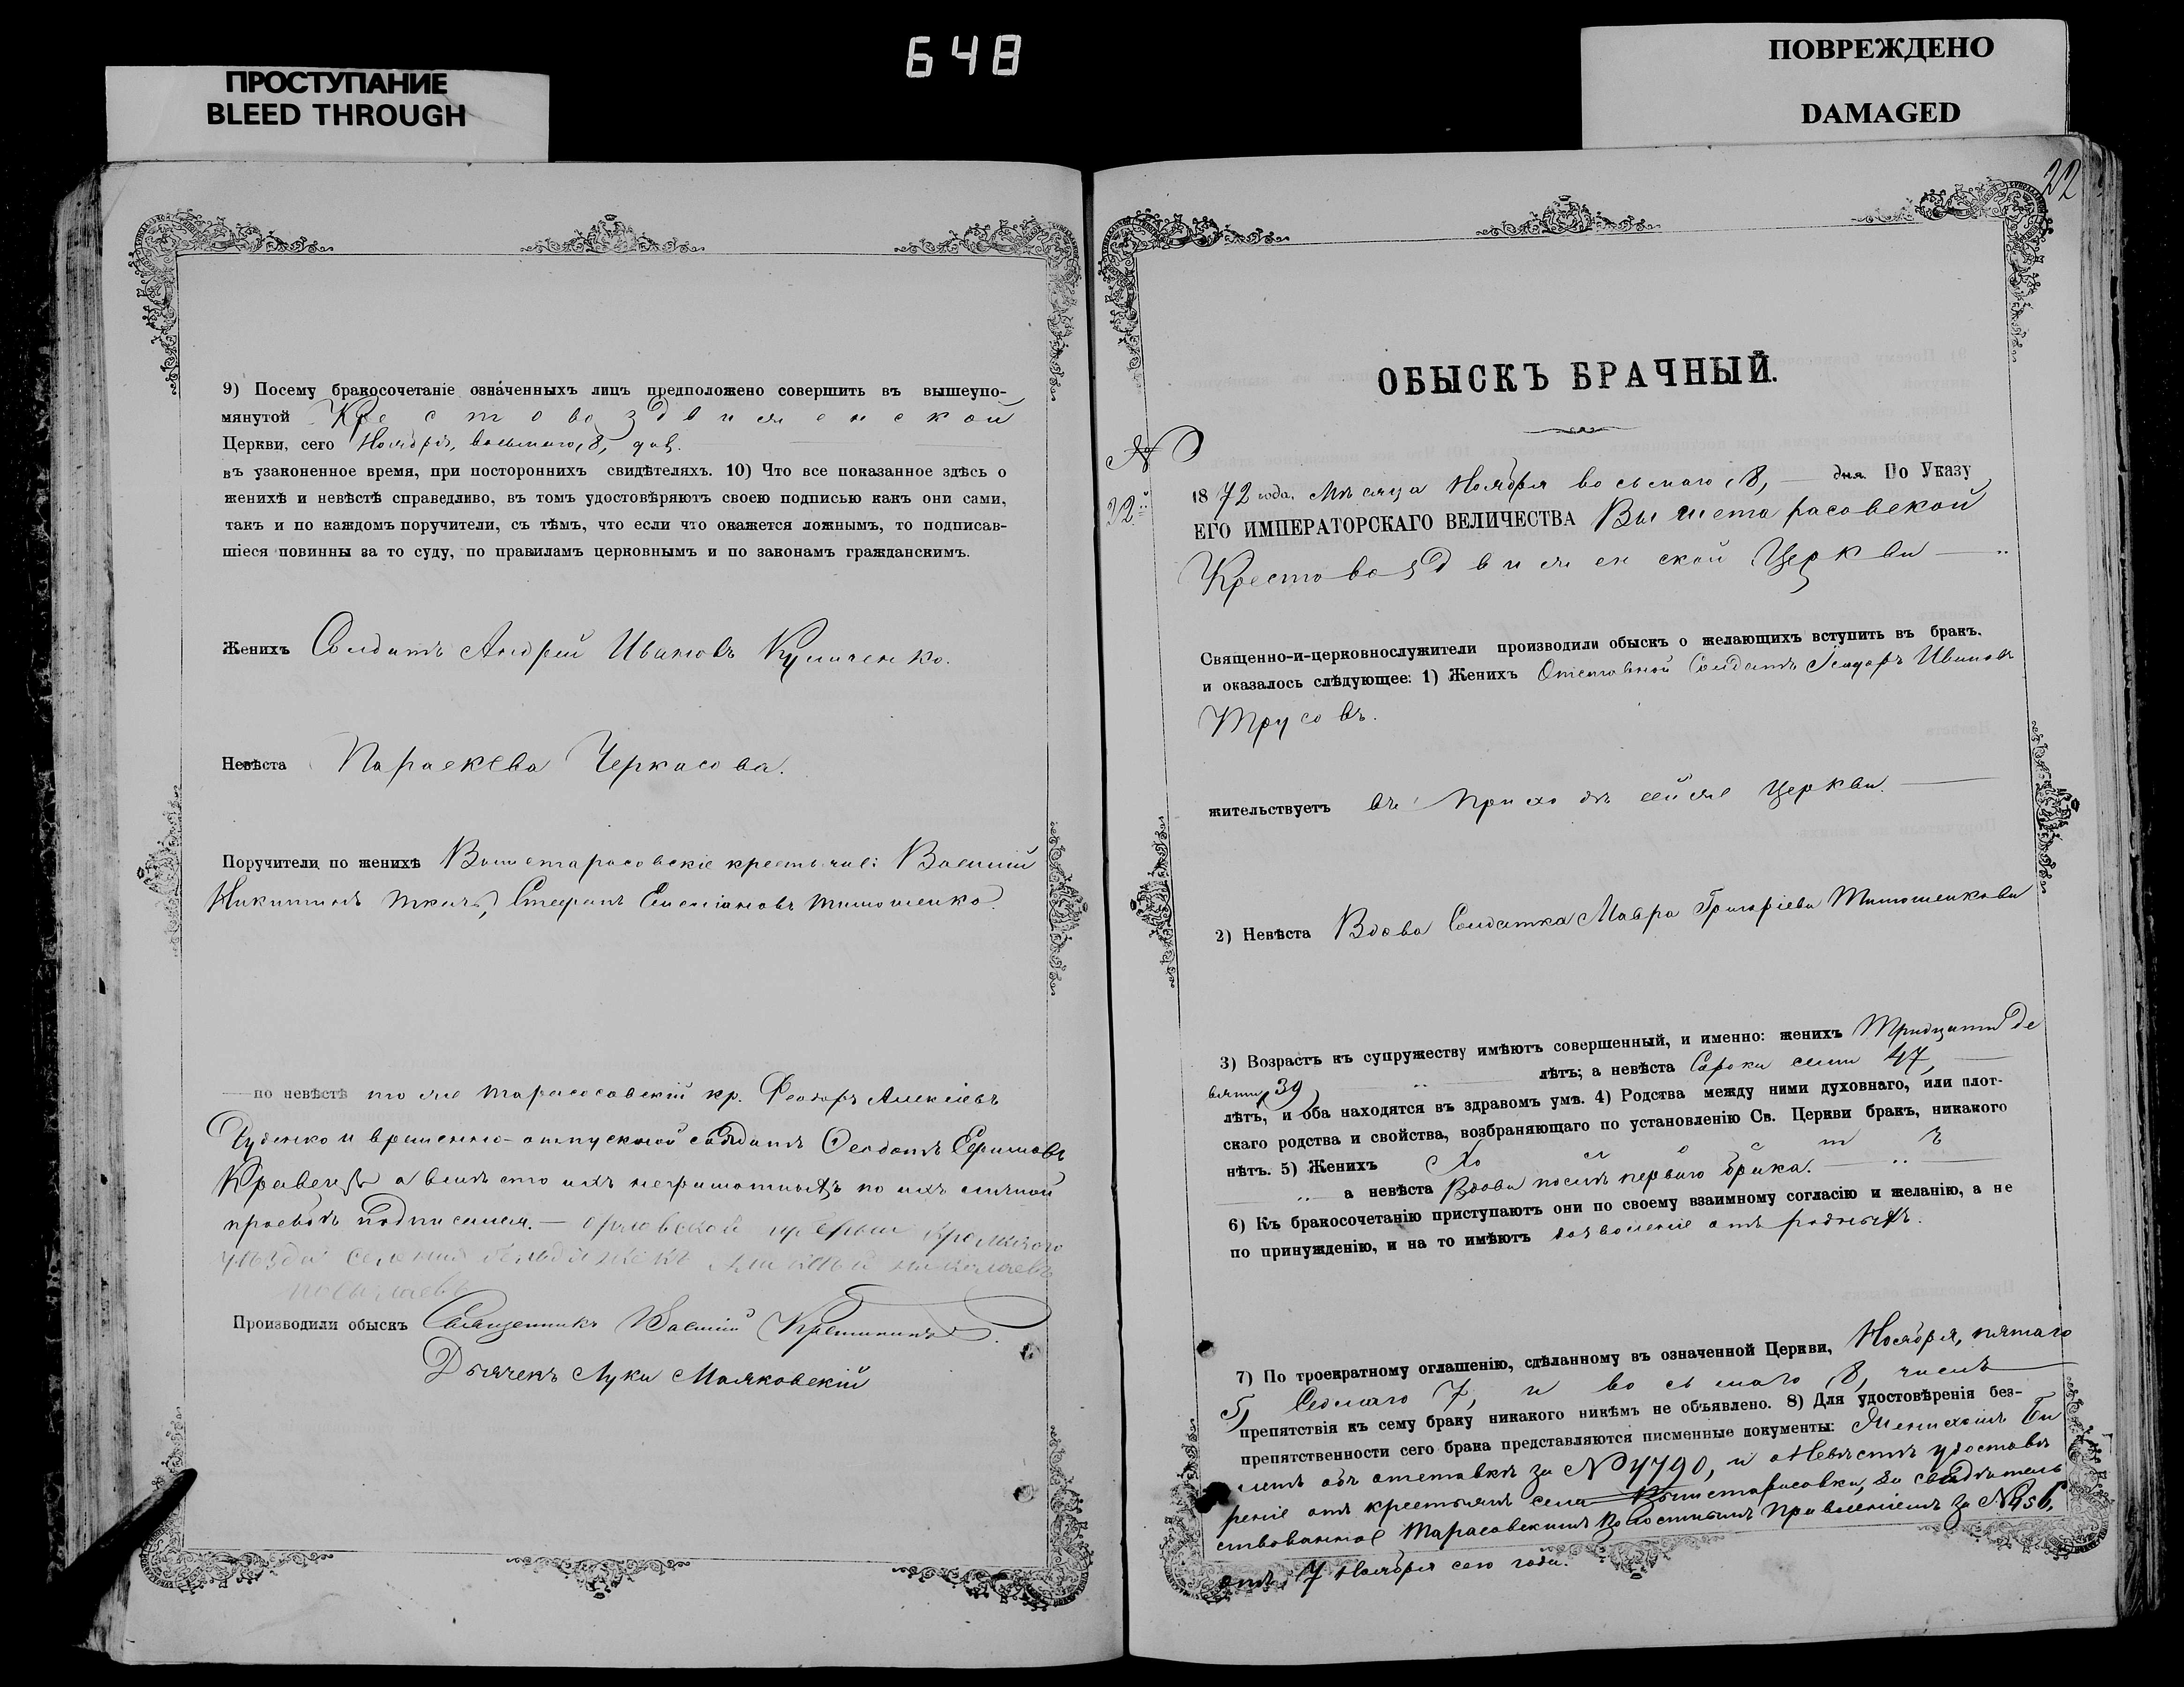 648
ПРОСТУПАНИЕ
BLEED THROUGH
ПОВРЕЖДЕНО
DAMAGED
9) Посему бракосочетаніе означенныхъ лицъ предположено совершить въ вышеупо-
мянутой Крестовоздвиженской
Церкви, сего Ноября, восьмаго, 8, дня.
въ узаконенное время, при постороннихъ свидѣтеляхъ. 10) Что все показанное здѣсь о
женихѣ и невѣстѣ справедливо, въ томъ удостовѣряютъ своею подписью какъ они сами,
такъ и по каждомъ поручители, съ тѣмъ, что если что окажется ложнымъ, то подписав-
шіеся повинны за то суду, по правиламъ церковнымъ и по законамъ гражданскимъ.
Женихъ Солдатъ Андрей Ивановъ
Невѣста Параскева Черкасова.
Поручители по женихѣ Вышетарасовскіе крестьяне: Василій
Никитинъ Ткачъ, Стефанъ Тимошенко.
по невѣстѣ тоже Тарасовскій кр. Феодоръ Алексѣевъ
и временно-отпускной солдатъ Феодотъ Ефимовъ
Кравецъ, а вмѣсто ихъ неграмотныхъ по ихъ личной
прозьбѣ подписался. — орловской
уѣзда
Производили обыскъ Священникъ Василій
Дьячекъ Лука Маяковскій
22
ОБЫСКЪ БРАЧНЫЙ.
№
22й
1872 года, Мѣсяца Ноября восьмаго, 8, дня. По Указу
ЕГО ИМПЕРАТОРСКАГО ВЕЛИЧЕСТВА Вышетарасовской
Крестовоздвиженской Церкви
Священно-и-церковнослужители производили обыскъ о желающихъ вступить въ бракъ,
и оказалось слѣдующее: 1) Женихъ Отставной Солдатъ Ивановъ
Трусовъ.
жительствуетъ въ приходѣ сейже Церкви.
2) Невѣста Вдова Солдатка Мавра Григоріева Тимошенкова
3) Возрастъ къ супружеству имѣютъ совершенный, и именно: женихъ Тридцати де
вяти, 39, лѣтъ; а невѣста Сорока семи 47,
лѣтъ, и оба находятся въ здравомъ умѣ. 4) Родства между ними духовнаго, или плот-
скаго родства и свойства, возбраняющаго по установленію Св. Церкви бракъ, никакого
нѣтъ. 5) Женихъ Холостъ
а невѣста Вдова послѣ перваго брака.
6) Къ бракосочетанію приступаютъ они по своему взаимному согласію и желанію, а не
по принужденію, и на то имѣютъ дозволеніе отъ родныхъ.
7) По троекратному оглашенію, сдѣланному въ означенной Церкви, Ноября, пятаго
5, Седьмаго 7, и восьмаго 8, числѣ
препятствія къ сему браку никакого никѣмъ не объявлено. 8) Для удостовѣренія без-
препятственности сего брака представляются писменные документы: Женихомъ Би
летъ объ отставкѣ за № 4790, и о Невѣстѣ удостовѣ
реніе отъ крестьянъ села Вышетарасовки, за свидѣтель
ствованное Тарасовскимъ Волостнымъ Правленіемъ за №
отъ 7 Ноября сего года.